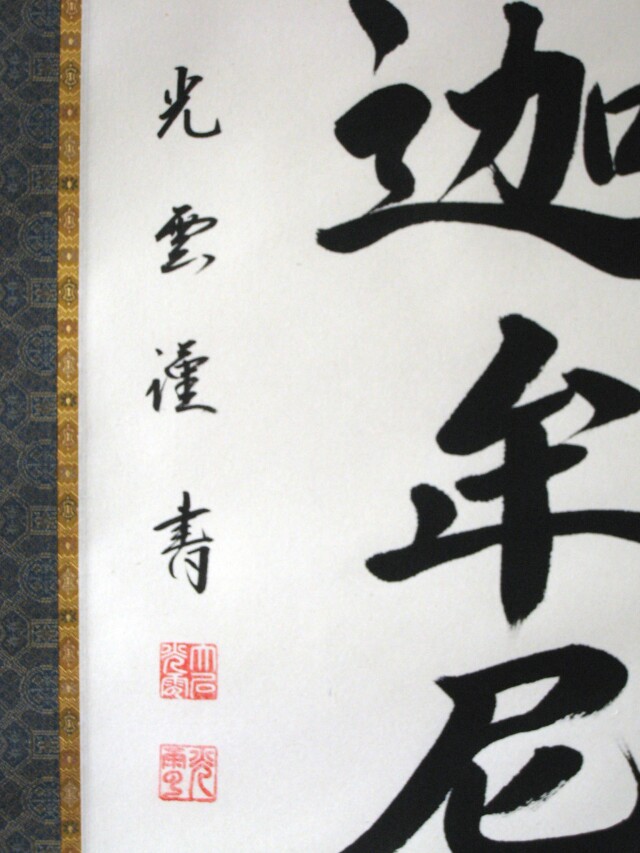 迦牟尼
光雲謹書